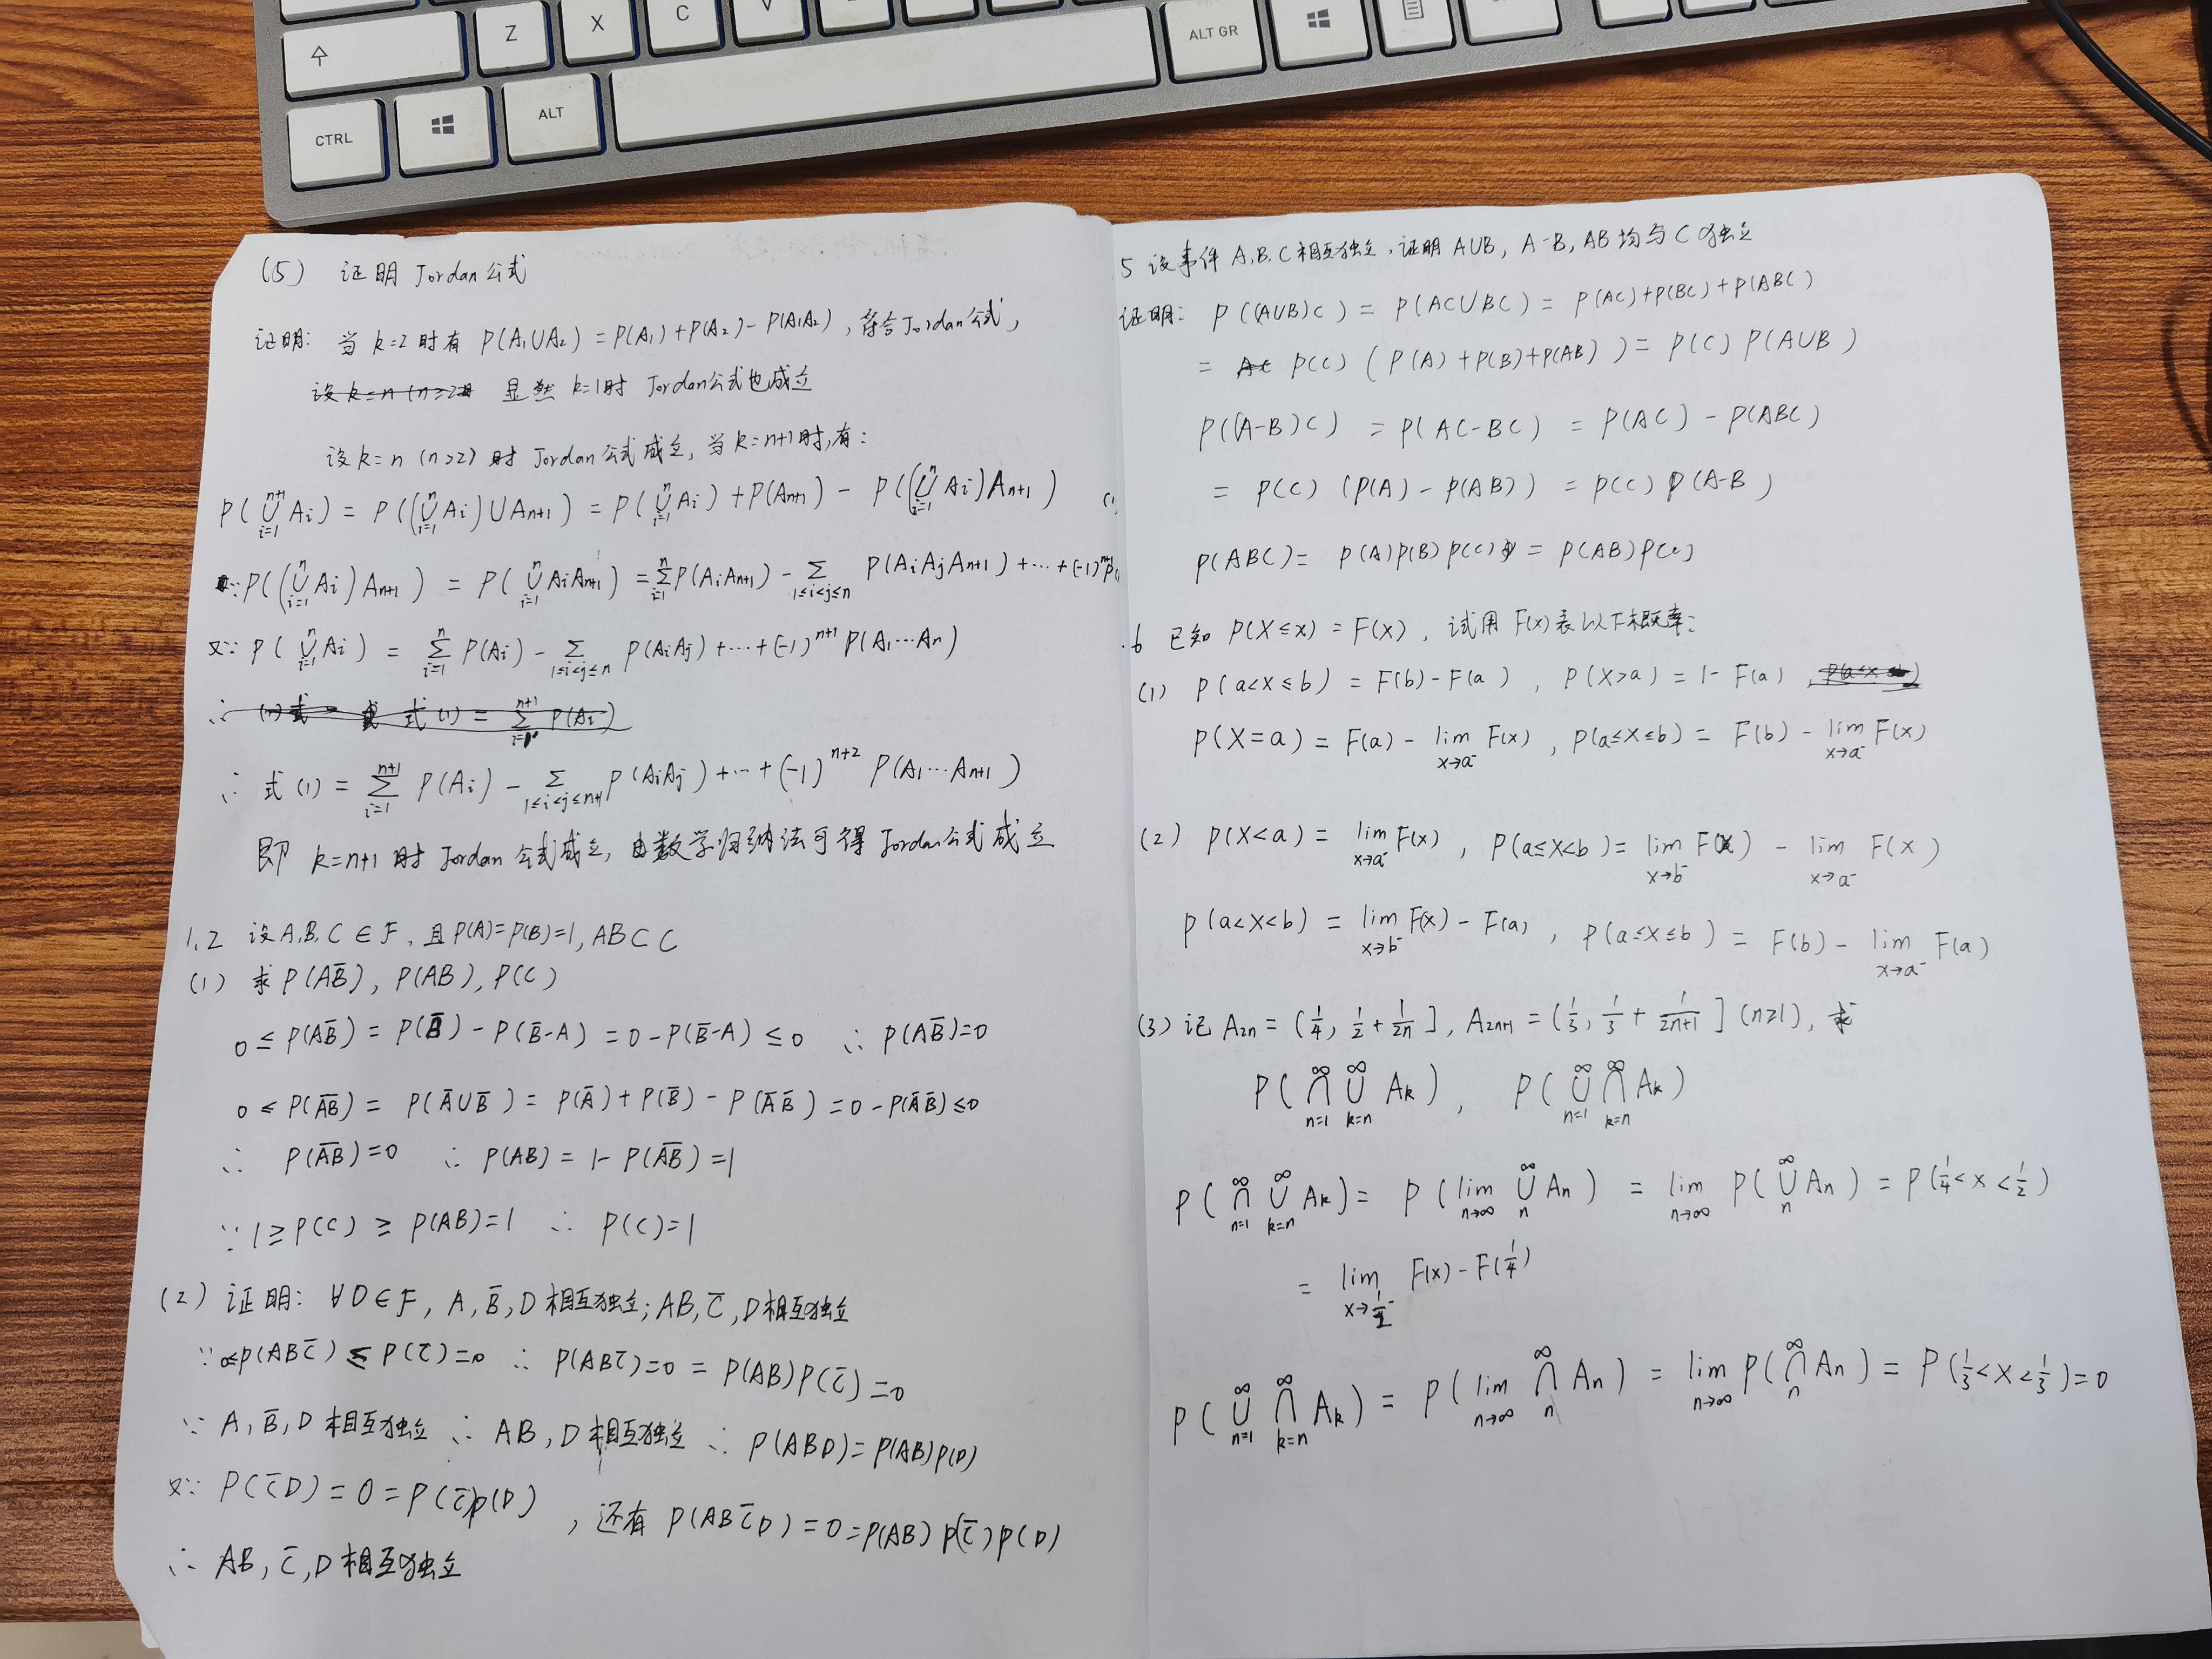 Z X C V ALT GR
CTRL ALT
(5) 证明 Jordan公式
证明: 当 k=2 时有 P(A₁∪A₂) = P(A₁)+P(A₂)-P(A₁A₂), 符合Jordan公式,
设k=n (n≥2 显然 k=1时 Jordan公式也成立
设k=n (n≥2) 时 Jordan公式成立, 当k=n+1时,有:
P(⋃_{i=1}^{n+1} Ai) = P((⋃_{i=1}^{n} Ai)∪A_{n+1}) = P(⋃_{i=1}^{n} Ai) + P(A_{n+1}) - P((⋃_{i=1}^{n} Ai)A_{n+1}) (1
∵P((⋃_{i=1}^{n} Ai)A_{n+1}) = P(⋃_{i=1}^{n} AiA_{n+1}) = ∑_{i=1}^{n} P(AiA_{n+1}) - ∑_{1≤i<j≤n} P(AiAjA_{n+1}) + ⋯ + (-1)^{n+1}P(
又∵ P(⋃_{i=1}^{n} Ai) = ∑_{i=1}^{n} P(Ai) - ∑_{1≤i<j≤n} P(AiAj) + ⋯ + (-1)^{n+1} P(A₁⋯An)
∴ (1)式 = 式(1) = ∑_{i=1}^{n+1} P(Ai)
∴ 式(1) = ∑_{i=1}^{n+1} P(Ai) - ∑_{1≤i<j≤n+1} P(AiAj) + ⋯ + (-1)^{n+2} P(A₁⋯A_{n+1})
即 k=n+1 时 Jordan公式成立, 由数学归纳法可得 Jordan公式成立
1.2 设A,B,C∈F, 且P(A)=P(B)=1, AB⊂C
(1) 求P(AB̄), P(AB), P(C)
0 ≤ P(AB̄) = P(B̄) - P(B̄-A) = 0 - P(B̄-A) ≤ 0 ∴ P(AB̄)=0
0 ≤ P(\overline{AB}) = P(Ā∪B̄) = P(Ā)+P(B̄) - P(ĀB̄) = 0 - P(ĀB̄) ≤ 0
∴ P(\overline{AB})=0 ∴ P(AB) = 1 - P(\overline{AB}) = 1
∵ 1 ≥ P(C) ≥ P(AB)=1 ∴ P(C)=1
(2) 证明: ∀D∈F, A,B̄,D相互独立; AB,C̄,D相互独立
∵ 0≤P(ABC̄) ≤ P(C̄)=0 ∴ P(ABC̄)=0 = P(AB)P(C̄)=0
∵ A,B̄,D相互独立 ∴ AB,D相互独立 ∴ P(ABD)=P(AB)P(D)
又∵ P(C̄D) = 0 = P(C̄)P(D) , 还有 P(ABC̄D) = 0 = P(AB)P(C̄)P(D)
∴ AB,C̄,D相互独立
5 设事件A,B,C相互独立,证明A∪B, A-B, AB均与C独立
证明: P((A∪B)C) = P(AC∪BC) = P(AC)+P(BC)+P(ABC)
= AC P(C) (P(A)+P(B)+P(AB)) = P(C)P(A∪B)
P((A-B)C) = P(AC-BC) = P(AC) - P(ABC)
= P(C) (P(A)-P(AB)) = P(C)P(A-B)
P(ABC) = P(A)P(B)P(C) = P(AB)P(C)
.6 已知 P(X≤x) = F(x), 试用F(x)表以下概率:
(1) P(a<X≤b) = F(b)-F(a), P(X>a) = 1-F(a), P(a≤X
P(X=a) = F(a) - lim_{x→a⁻} F(x), P(a≤X≤b) = F(b) - lim_{x→a⁻} F(x)
(2) P(X<a) = lim_{x→a⁻} F(x), P(a≤X<b) = lim_{x→b⁻} F(x) - lim_{x→a⁻} F(x)
P(a<X<b) = lim_{x→b⁻} F(x) - F(a), P(a≤X≤b) = F(b) - lim_{x→a⁻} F(a)
(3) 记 A_{2n} = (1/4, 1/2 + 1/2n], A_{2n+1} = (1/3, 1/3 + 1/(2n+1)] (n≥1), 求
P(⋂_{n=1}^{∞} ⋃_{k=n}^{∞} Ak), P(⋃_{n=1}^{∞} ⋂_{k=n}^{∞} Ak)
P(⋂_{n=1}^{∞} ⋃_{k=n}^{∞} Ak) = P(lim_{n→∞} ⋃_{n}^{∞} An) = lim_{n→∞} P(⋃_{n}^{∞} An) = P(1/4<x<1/2)
= lim_{x→1/2⁻} F(x) - F(1/4)
P(⋃_{n=1}^{∞} ⋂_{k=n}^{∞} Ak) = P(lim_{n→∞} ⋂_{n}^{∞} An) = lim_{n→∞} P(⋂_{n}^{∞} An) = P(1/3<x<1/3)=0